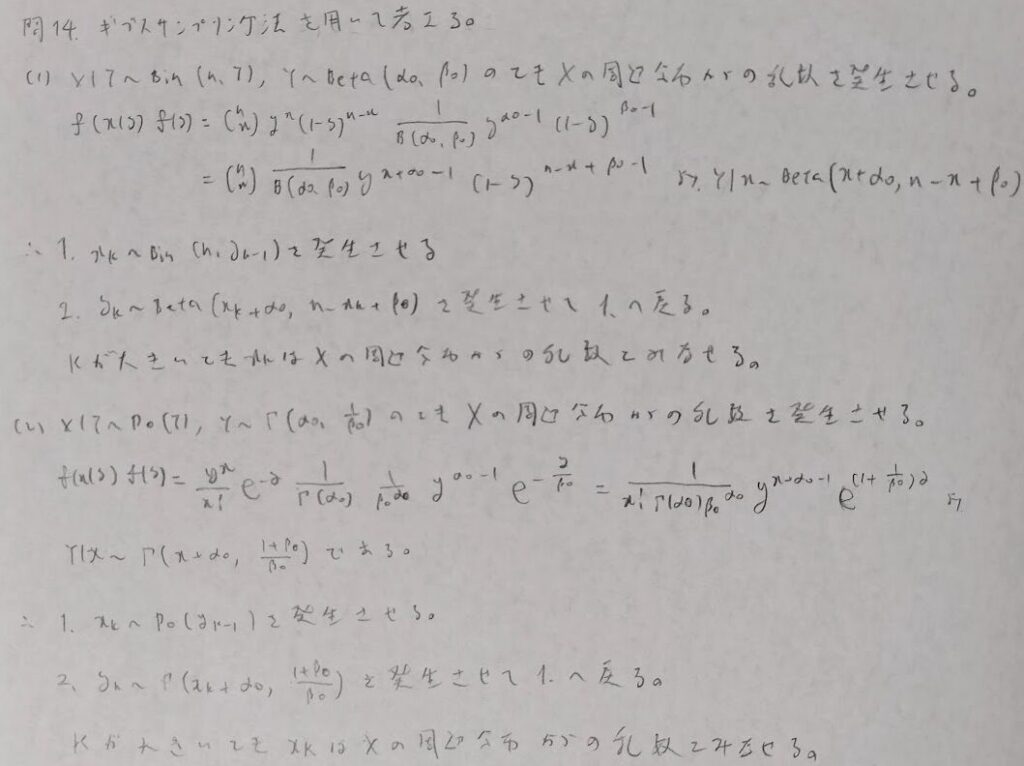 問14. ギブスサンプリング法を用いて考える。
(1) X|Y~Bin(n,Y), Y~Beta(α₀, β₀) のとき Xの周辺分布からの乱数を発生させる。
f(x|y) f(y) = (n x) y^x (1-y)^{n-x} 1/B(α₀, β₀) y^{α₀-1} (1-y)^{β₀-1}
= (n x) 1/B(α₀, β₀) y^{x+α₀-1} (1-y)^{n-x+β₀-1} より, Y|x~Beta(x+α₀, n-x+β₀)
∴ 1. x_k~Bin(n, y_{k-1}) を発生させる
2. y_k~Beta(x_k+α₀, n-x_k+β₀) を発生させて 1. へ戻る。
kが大きいとき x_kは Xの周辺分布からの乱数とみなせる。
(2) X|Y~Po(Y), Y~Γ(α₀, 1/β₀) のとき Xの周辺分布からの乱数を発生させる。
f(x|y) f(y) = y^x/x! e^{-y} 1/Γ(α₀) 1/β₀^{α₀} y^{α₀-1} e^{-y/β₀} = 1/(x! Γ(α₀) β₀^{α₀}) y^{x+α₀-1} e^{(1+1/β₀)y} より
Y|x~Γ(x+α₀, (1+β₀)/β₀) である。
∴ 1. x_k~Po(y_{k-1}) を発生させる。
2. y_k~Γ(x_k+α₀, (1+β₀)/β₀) を発生させて 1. へ戻る。
kが大きいとき x_kは Xの周辺分布からの乱数とみなせる。